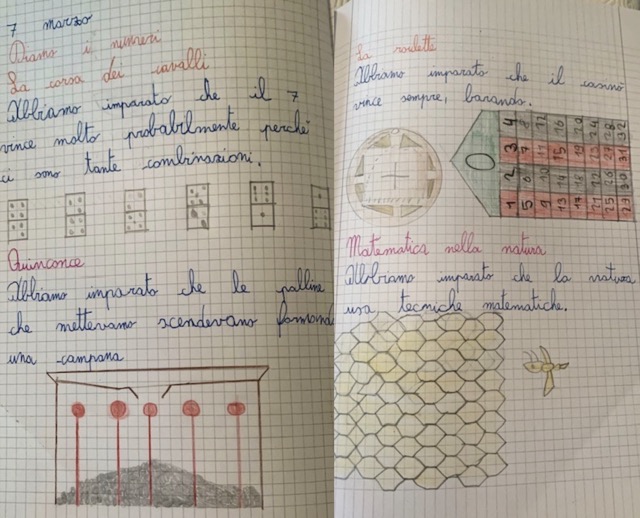 7 marzo
Diamo i numeri
La corsa dei cavalli
Abbiamo imparato che il 7
vince molto probabilmente perché
ci sono tante combinazioni.
Quinconce
Abbiamo imparato che le palline
che mettevamo scendevano formando
una campana
La roulette
Abbiamo imparato che il casinò
vince sempre, barando.
0
1 2 3 4
5 6 7 8
9 10 11 12
13 14 15 16
17 18 19 20
21 22 23 24
25 26 27 28
29 30 31 32
Matematica nella natura
Abbiamo imparato che la natura
usa tecniche matematiche.